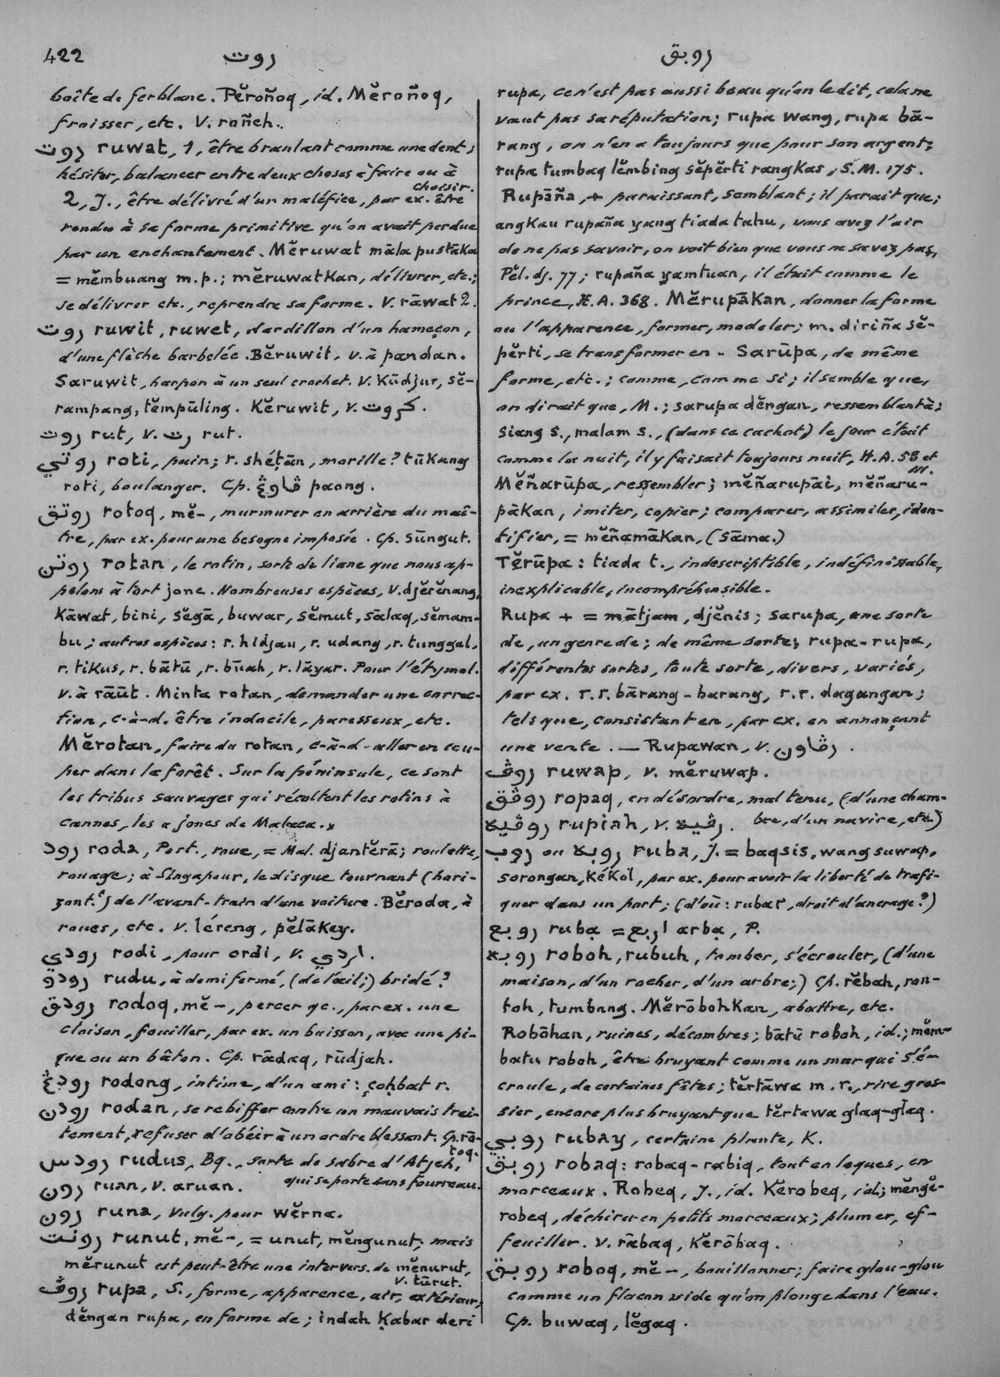 422 روت روبق
boîte de ferblanc. Pĕroñoq, id. Mĕroñoq,
froisser, etc. V. roñeh.
روت ruwat, 1, être branlant comme une dent;
hésiter, balancer entre deux choses à faire ou à
choisir.
2, J., être délivré d'un maléfice, par ex. être
rendu à sa forme primitive qu'on avait perdue
par un enchantement. Mĕruwat māla pustāka
= mĕmbuang m.p.; mĕruwatkan, délivrer, etc.;
se délivrer etc., reprendre sa forme. V. rāwat 2.
روت ruwit, ruwet, dardillon d'un hameçon,
d'une flèche barbelée. Bĕruwit, v. à pandan.
Saruwit, harpon à un seul crochet. V. Kūdjur, sĕ-
rampang, tĕmpūling. Kĕruwit, v. كروت.
روت rut, v. رت rut.
روتي roti, pain; r. shéṭān, morille? tūkang
roti, boulanger. Cp. ڤاوڠ paong.
روتق rotoq, mĕ-, murmurer en arrière du maî-
tre, par ex. pour une besogne imposée. Cp. Sūngut.
روتن rotan, le rotin, sorte de liane que nous ap-
pelons à tort jonc. Nombreuses espèces, V. djĕrĕnang,
Kāwat, bini, sĕgā, buwar, sĕmut, sālaq, sĕmam-
bu; autres espèces: r. hidjau, r. udang, r. tunggal,
r. tikus, r. bātū, r. būah, r. lāyar. Pour l'étymol.
v. à rāūt. Minta rotan, demander une correc-
tion, c-à-d. être indocile, paresseux, etc.
Mĕrotan, faire du rotan, c-à-d- aller en cou-
per dans la forêt. Sur la péninsule, ce sont
les tribus sauvages qui récoltent les rotins à
cannes, les ajoncs de Malaca.
رود roda, Port., roue, = Mal. djantĕrā; roulette,
rouage; à Singapour, le disque tournant (hori-
zont.ᵗ) de l'avant-train d'une voiture. Bĕroda, à
roues, etc. V. léreng, pĕlākey.
رودي rodi, pour ordi, v. اردي.
رودو rudu, à demi fermé, (de l'œil;) bridé?
رودق rodoq, mĕ-, percer qc., par ex. une
cloison, fouiller, par ex. un buisson, avec une pi-
que ou un bâton. Cp. rādaq, rūdjah.
رودڠ rodong, intime, d'un ami: çoḥbat r.
رودن rodan, se rebiffer contre un mauvais trai-
tement, refuser d'obéir à un ordre blessant. Cp. rō-
toq.
رودس rudus, Bg., sorte de sabre d'Atjeh,
qui se porte sans fourreau.
رون ruan, v. aruan.
رون runa, vulg. pour wĕrna.
رونت runut, mĕ-, = unut, mĕngunut, mais
mĕrunut est peut-être une intervers. de mĕnurut,
v. tūrut.
روڤ rupa, S., forme, apparence, air, extérieur;
dĕngan rupa, en forme de; indah Ḳabar deri
rupa, ce n'est pas aussi beau qu'on le dit, cela ne
vaut pas sa réputation; rupa wang, rupa bā-
rang, on n'en a toujours que pour son argent;
rupa tumbaq lĕmbing sĕpĕrti rangkas, S.M. 175.
Rupāña, + paraissant, semblant; il parait que;
angkau rupaña yang tiada tahu, vous avez l'air
de ne pas savoir, on voit bien que vous ne savez pas,
Pĕl. dj. 77; rupaña yamtuan, il était comme le
prince, H.A. 368. Mĕrupākan, donner la forme
ou l'apparence, former, modeler; m. diriña sĕ-
pĕrti, se transformer en. Sarūpa, de même
forme, etc.; comme, comme si; il semble que,
on dirait que, M.; sarupa dĕngan, ressemblant à;
siang s., malam s., (dans ce cachot) le jour était
comme la nuit, il y faisait toujours nuit, H.A. 58 et
M.
Mĕñarūpa, ressembler; mĕñarupāi, mĕñaru-
pākan, imiter, copier; comparer, assimiler, iden-
tifier, = mĕñamākan, (Sāma.)
Tĕrūpa: tiada t., indescriptible, indéfinissable,
inexplicable, incompréhensible.
Rupa + = mātjam, djĕnis; sarupa, une sorte
de, un genre de; de même sorte; rupa-rupa,
différentes sortes, toute sorte, divers, variés,
par ex. r. r. bārang-barang, r.r. dagangan;
tels que, consistant en, par ex. en annonçant
une vente. — Rupawan, v. رڤاون.
روڤ ruwap, v. mĕruwap.
روڤق ropaq, en désordre, mal tenu, (d'une cham-
bre, d'un navire, etc.)
روڤيه rupiah, v. رڤيه.
روب ou روبه ruba, J. = baqsis, wang suwap,
sorongan, kékol, par ex. pour avoir la liberté de trafi-
quer dans un port; (d'où: rubar, droit d'ancrage?)
روبع ruba = اربع arba, P.
روبه roboh, rubuh, tomber, s'écrouler, (d'une
maison, d'un rocher, d'un arbre;) Cp. rĕbah, ron-
toh, tumbang. Mĕrōbohkan, abattre, etc.
Robōhan, ruines, décombres; bātū roboh, id.; mĕm-
batu roboh, être bruyant comme un mur qui s'é-
croule, de certaines fêtes; tĕrtāwa m. r., rire gros-
sier, encore plus bruyant que tĕrtawa glaq-glaq.
روبي rubay, certaine plante, K.
روبق robaq: robaq-rabiq, tout en loques, en
morceaux. Robeq, J., id. Kĕrobeq, id; mĕngĕ-
robeq, déchirer en petits morceaux; plumer, ef-
feuiller. V. rābaq, kĕrōbaq.
روبق roboq, mĕ-, bouillonner; faire glou-glou
comme un flacon vide qu'on plonge dans l'eau.
Cp. buwaq, lĕgaq.